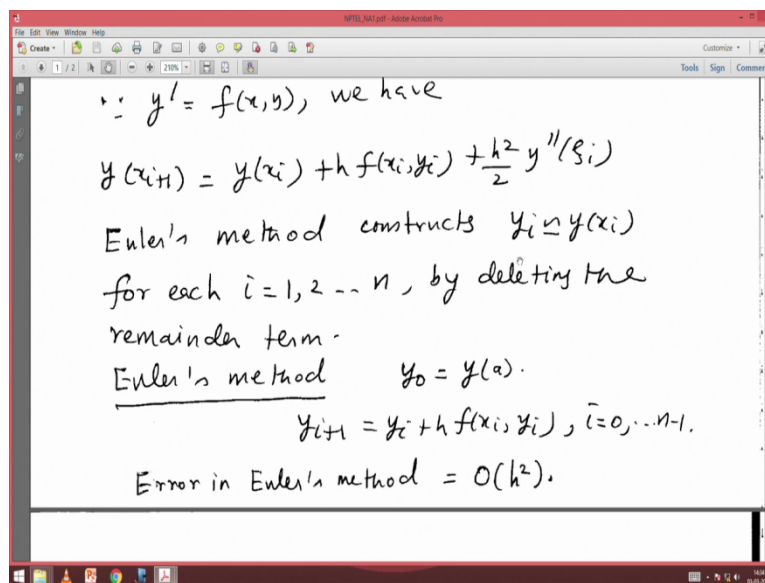 NPTEL_NA1.pdf - Adobe Acrobat Pro
File Edit View Window Help
Create Customize
1 / 2 210% Tools Sign Comment
∵ y' = f(x,y), we have
y(x_{i+1}) = y(x_i) + h f(x_i, y_i) + h²/2 y''(ξ_i)
Euler's method constructs y_i ≃ y(x_i)
for each i = 1, 2 -- n, by deleting the
remainder term.
Euler's method y_0 = y(a).
y_{i+1} = y_i + h f(x_i, y_i), i = 0, ... n-1.
Error in Euler's method = O(h²).